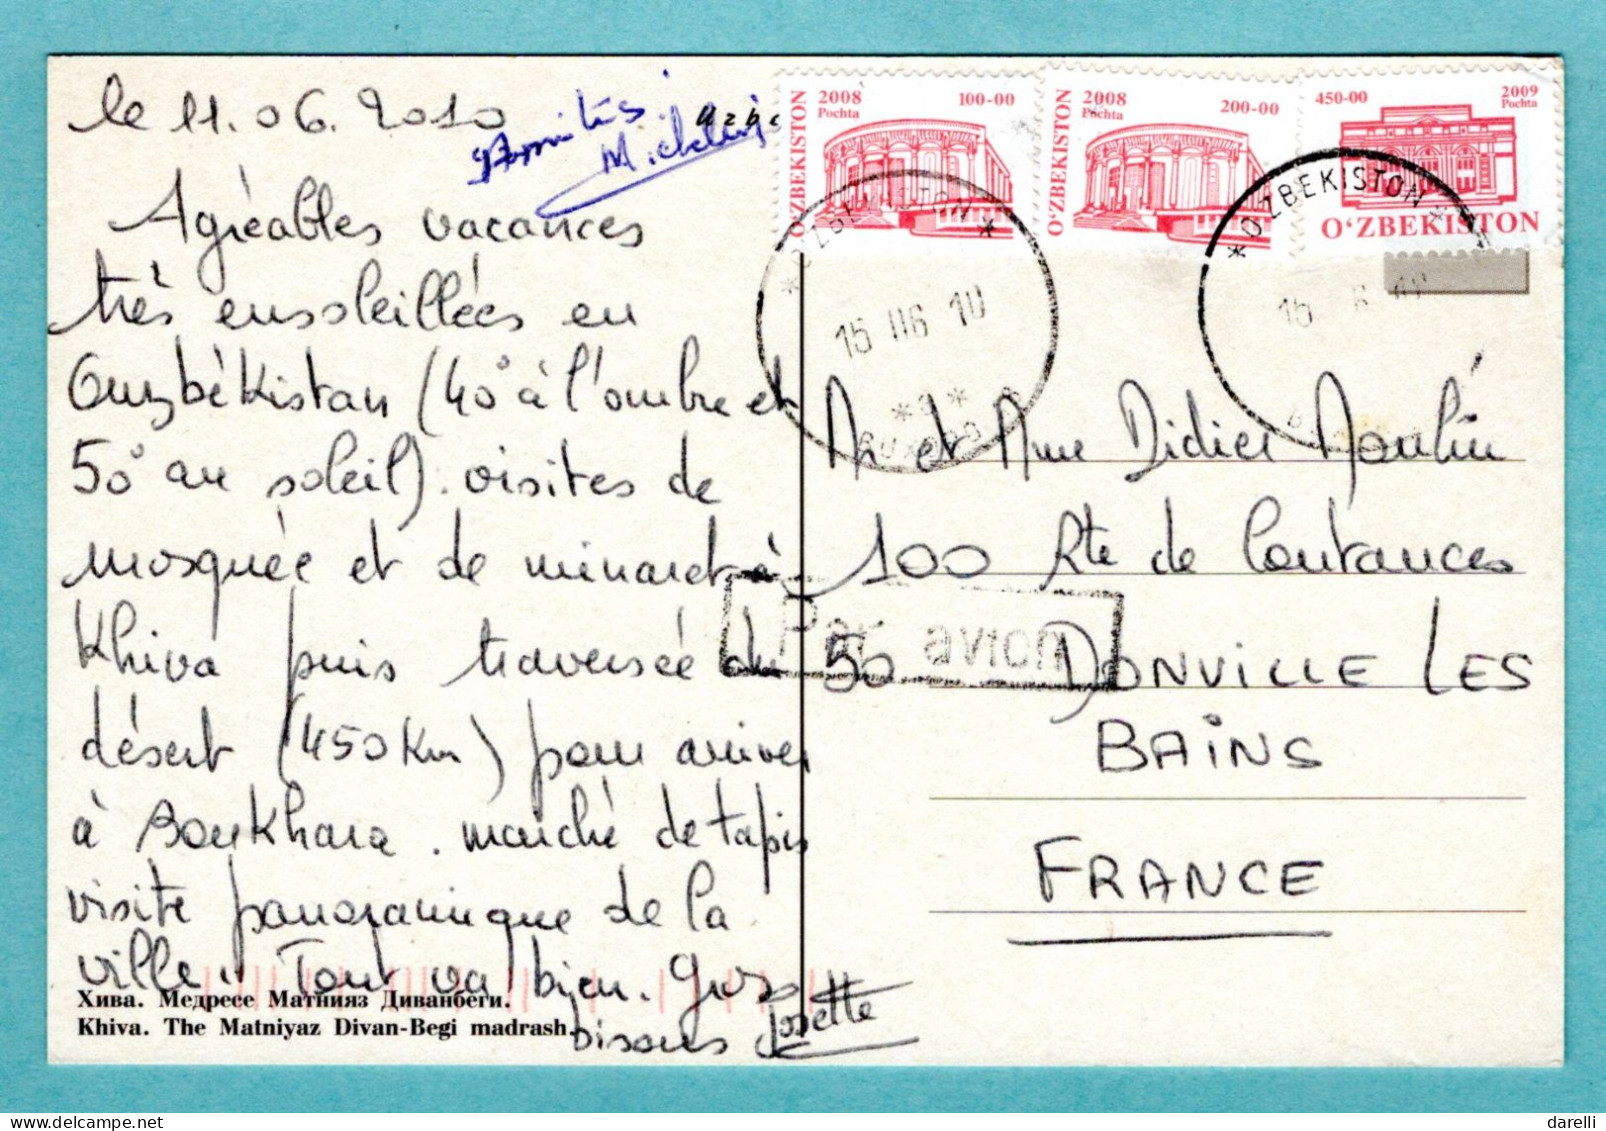 le 11.06.2010
Amitiés
Agréables vacances
très ensoleillées en
Ouzbékistan (40° à l'ombre et
50° au soleil). visites de
mosquée et de minaret à
Khiva puis traversée du
désert (450 Km) pour arriver
à Boukhara. marché de tapis
visite panoramique de la
ville. Tout va bien. Gros
bisous Josette
Хива. Медресе Матнияз Диванбеги.
Khiva. The Matniyaz Divan-Begi madrash.
O‘ZBEKISTON
2008
Pochta
100-00
O‘ZBEKISTON
2008
Pochta
200-00
450-00
2009
Pochta
O‘ZBEKISTON
15 06 10
*O‘ZBEKISTON*
Mr et Mme Didier Moulin
100 Rte de Coutances
Par avion
50 DONVILLE LES
BAINS
FRANCE
darelli